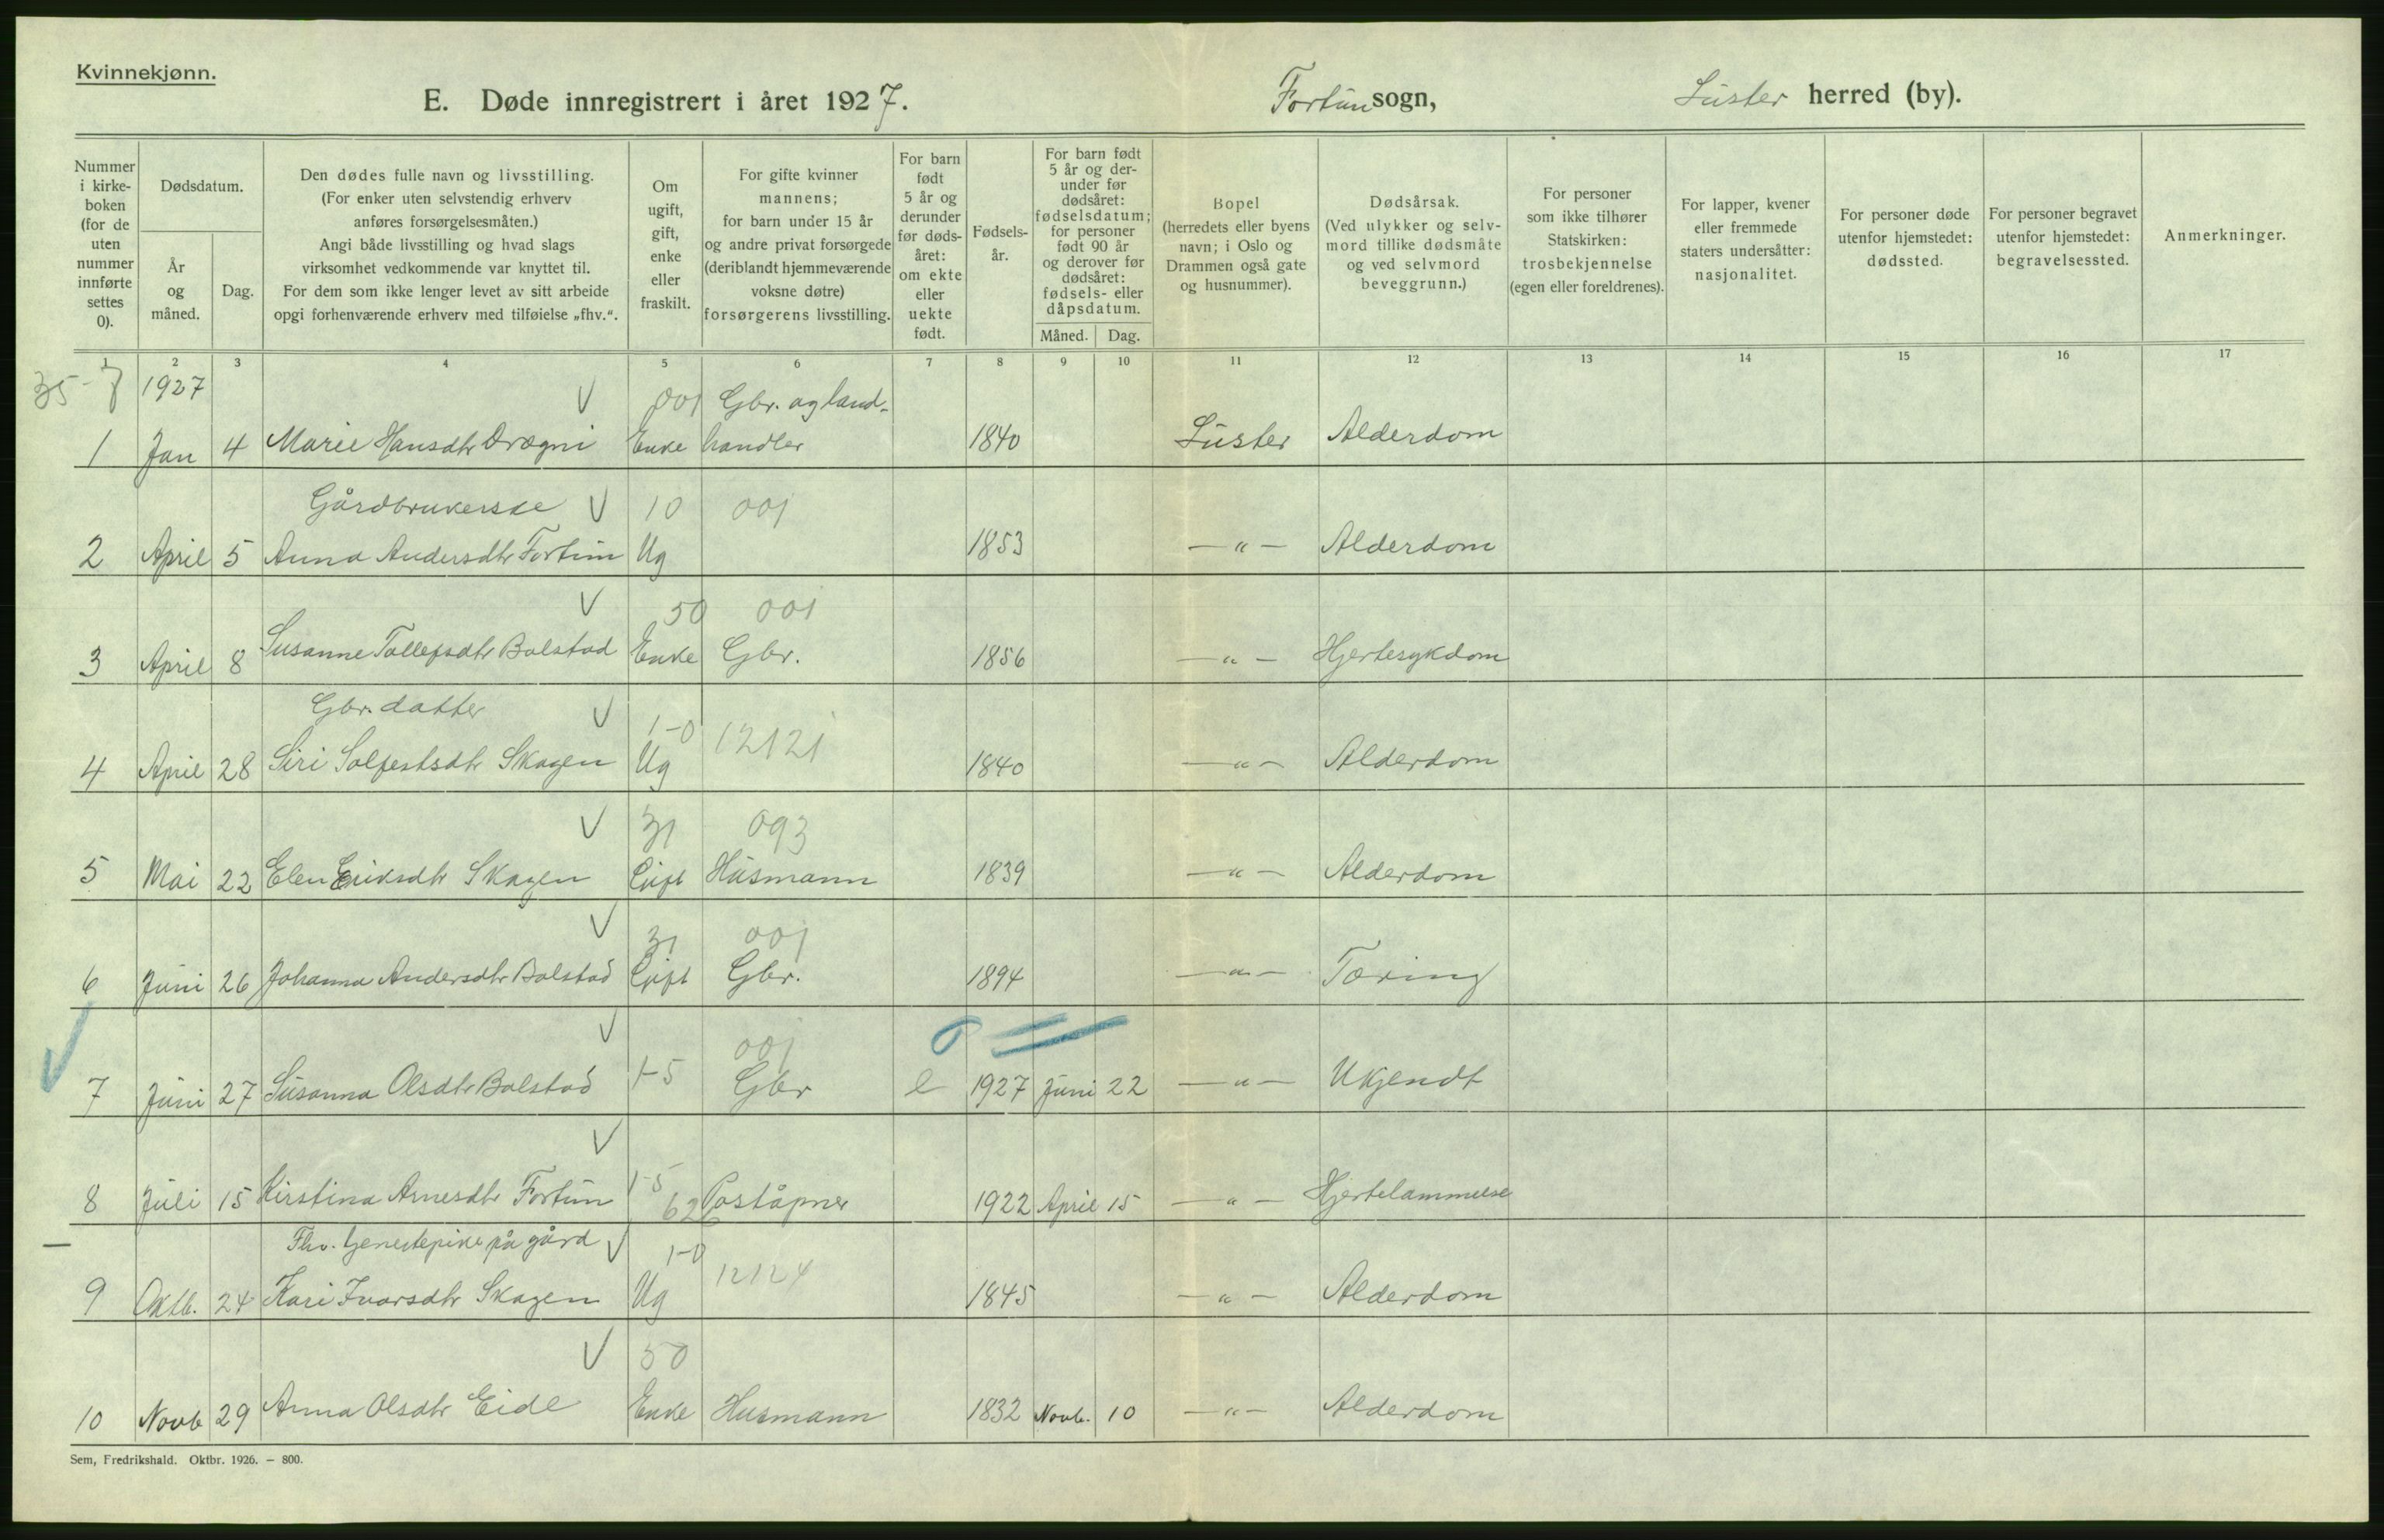 Kvinnekjønn.
E. Døde innregistrert i året 1927. Fortun sogn, Luster herred (by).
Nummer i kirke-boken (for de uten nummer innførte settes 0).
Dødsdatum.
År og måned.
Dag.
Den dødes fulle navn og livsstilling.
(For enker uten selvstendig erhverv
anføres forsørgelsesmåten.)
Angi både livsstilling og hvad slags
virksomhet vedkommende var knyttet til.
For dem som ikke lenger levet av sitt arbeide
opgi forhenværende erhverv med tilføielse „fhv.“.
Om ugift, gift, enke eller fraskilt.
For gifte kvinner
mannens;
for barn under 15 år
og andre privat forsørgede
(deriblandt hjemmeværende
voksne døtre)
forsørgerens livsstilling.
For barn født 5 år og derunder før døds-året: om ekte eller uekte født.
Fødsels-år.
For barn født
5 år og der-
under før
dødsåret:
fødselsdatum;
for personer
født 90 år
og derover før
dødsåret:
fødsels- eller
dåpsdatum.
Måned. Dag.
Bopel
(herredets eller byens
navn; i Oslo og
Drammen også gate
og husnummer).
Dødsårsak.
(Ved ulykker og selv-
mord tillike dødsmåte
og ved selvmord
beveggrunn.)
For personer
som ikke tilhører
Statskirken:
trosbekjennelse
(egen eller foreldrenes).
For lapper, kvener
eller fremmede
staters undersåtter:
nasjonalitet.
For personer døde
utenfor hjemstedet:
dødssted.
For personer begravet
utenfor hjemstedet:
begravelsessted.
Anmerkninger.
1 2 3 4 5 6 7 8 9 10 11 12 13 14 15 16 17
35-7 1927 V 001 Gbr. og land-
1 Jan 4 Marie Hansdtr Drægni Enke handler 1840 Luster Alderdom
Gårdbrukerske V 10 001
2 April 5 Anna Andersdtr Fortun Ug 1853 — " — Alderdom
V 50 001
3 April 8 Susanne Tollefsdtr Bolstad Enke Gbr. 1856 — " — Hjertesykdom
Gbr. datter V 1-0 12121
4 April 28 Siri Solfestsdtr Skagen Ug 1840 — " — Alderdom
V 31 093
5 Mai 22 Elen Eriksdtr Skagen Gift Husmann 1839 — " — Alderdom
V 31 001
6 Juni 26 Johanna Andersdtr Bolstad Gift Gbr. 1894 — " — Tæring
V 1-5 001
7 Juni 27 Susanna Olsdtr Bolstad Gbr e 1927 Juni 22 — " — Ukjendt
V 1-5
8 Juli 15 Kirstina Arnesdtr Fortun 62 Poståpner 1922 April 15 — " — Hjertelammelse
Fhv. tjenestepike på gård V 1-0 12124
9 Oktb. 24 Kari Ivarsdtr Skagen Ug 1845 — " — Alderdom
V 50
10 Novb 29 Anna Olsdtr Eide Enke Husmann 1832 Novb. 10 — " — Alderdom
Sem, Fredrikshald. Oktbr. 1926. — 800.